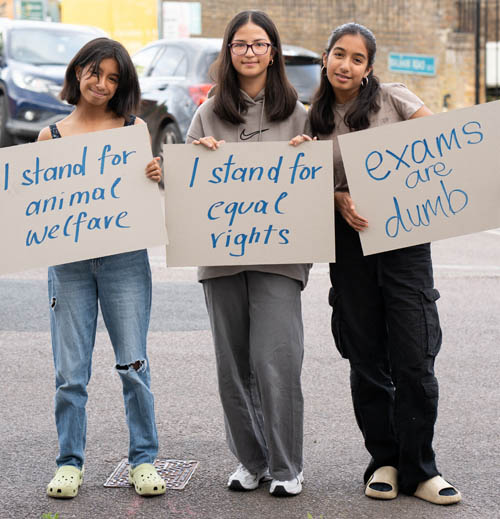 I stand for
animal
welfare
I stand for
equal
rights
exams
are
dumb